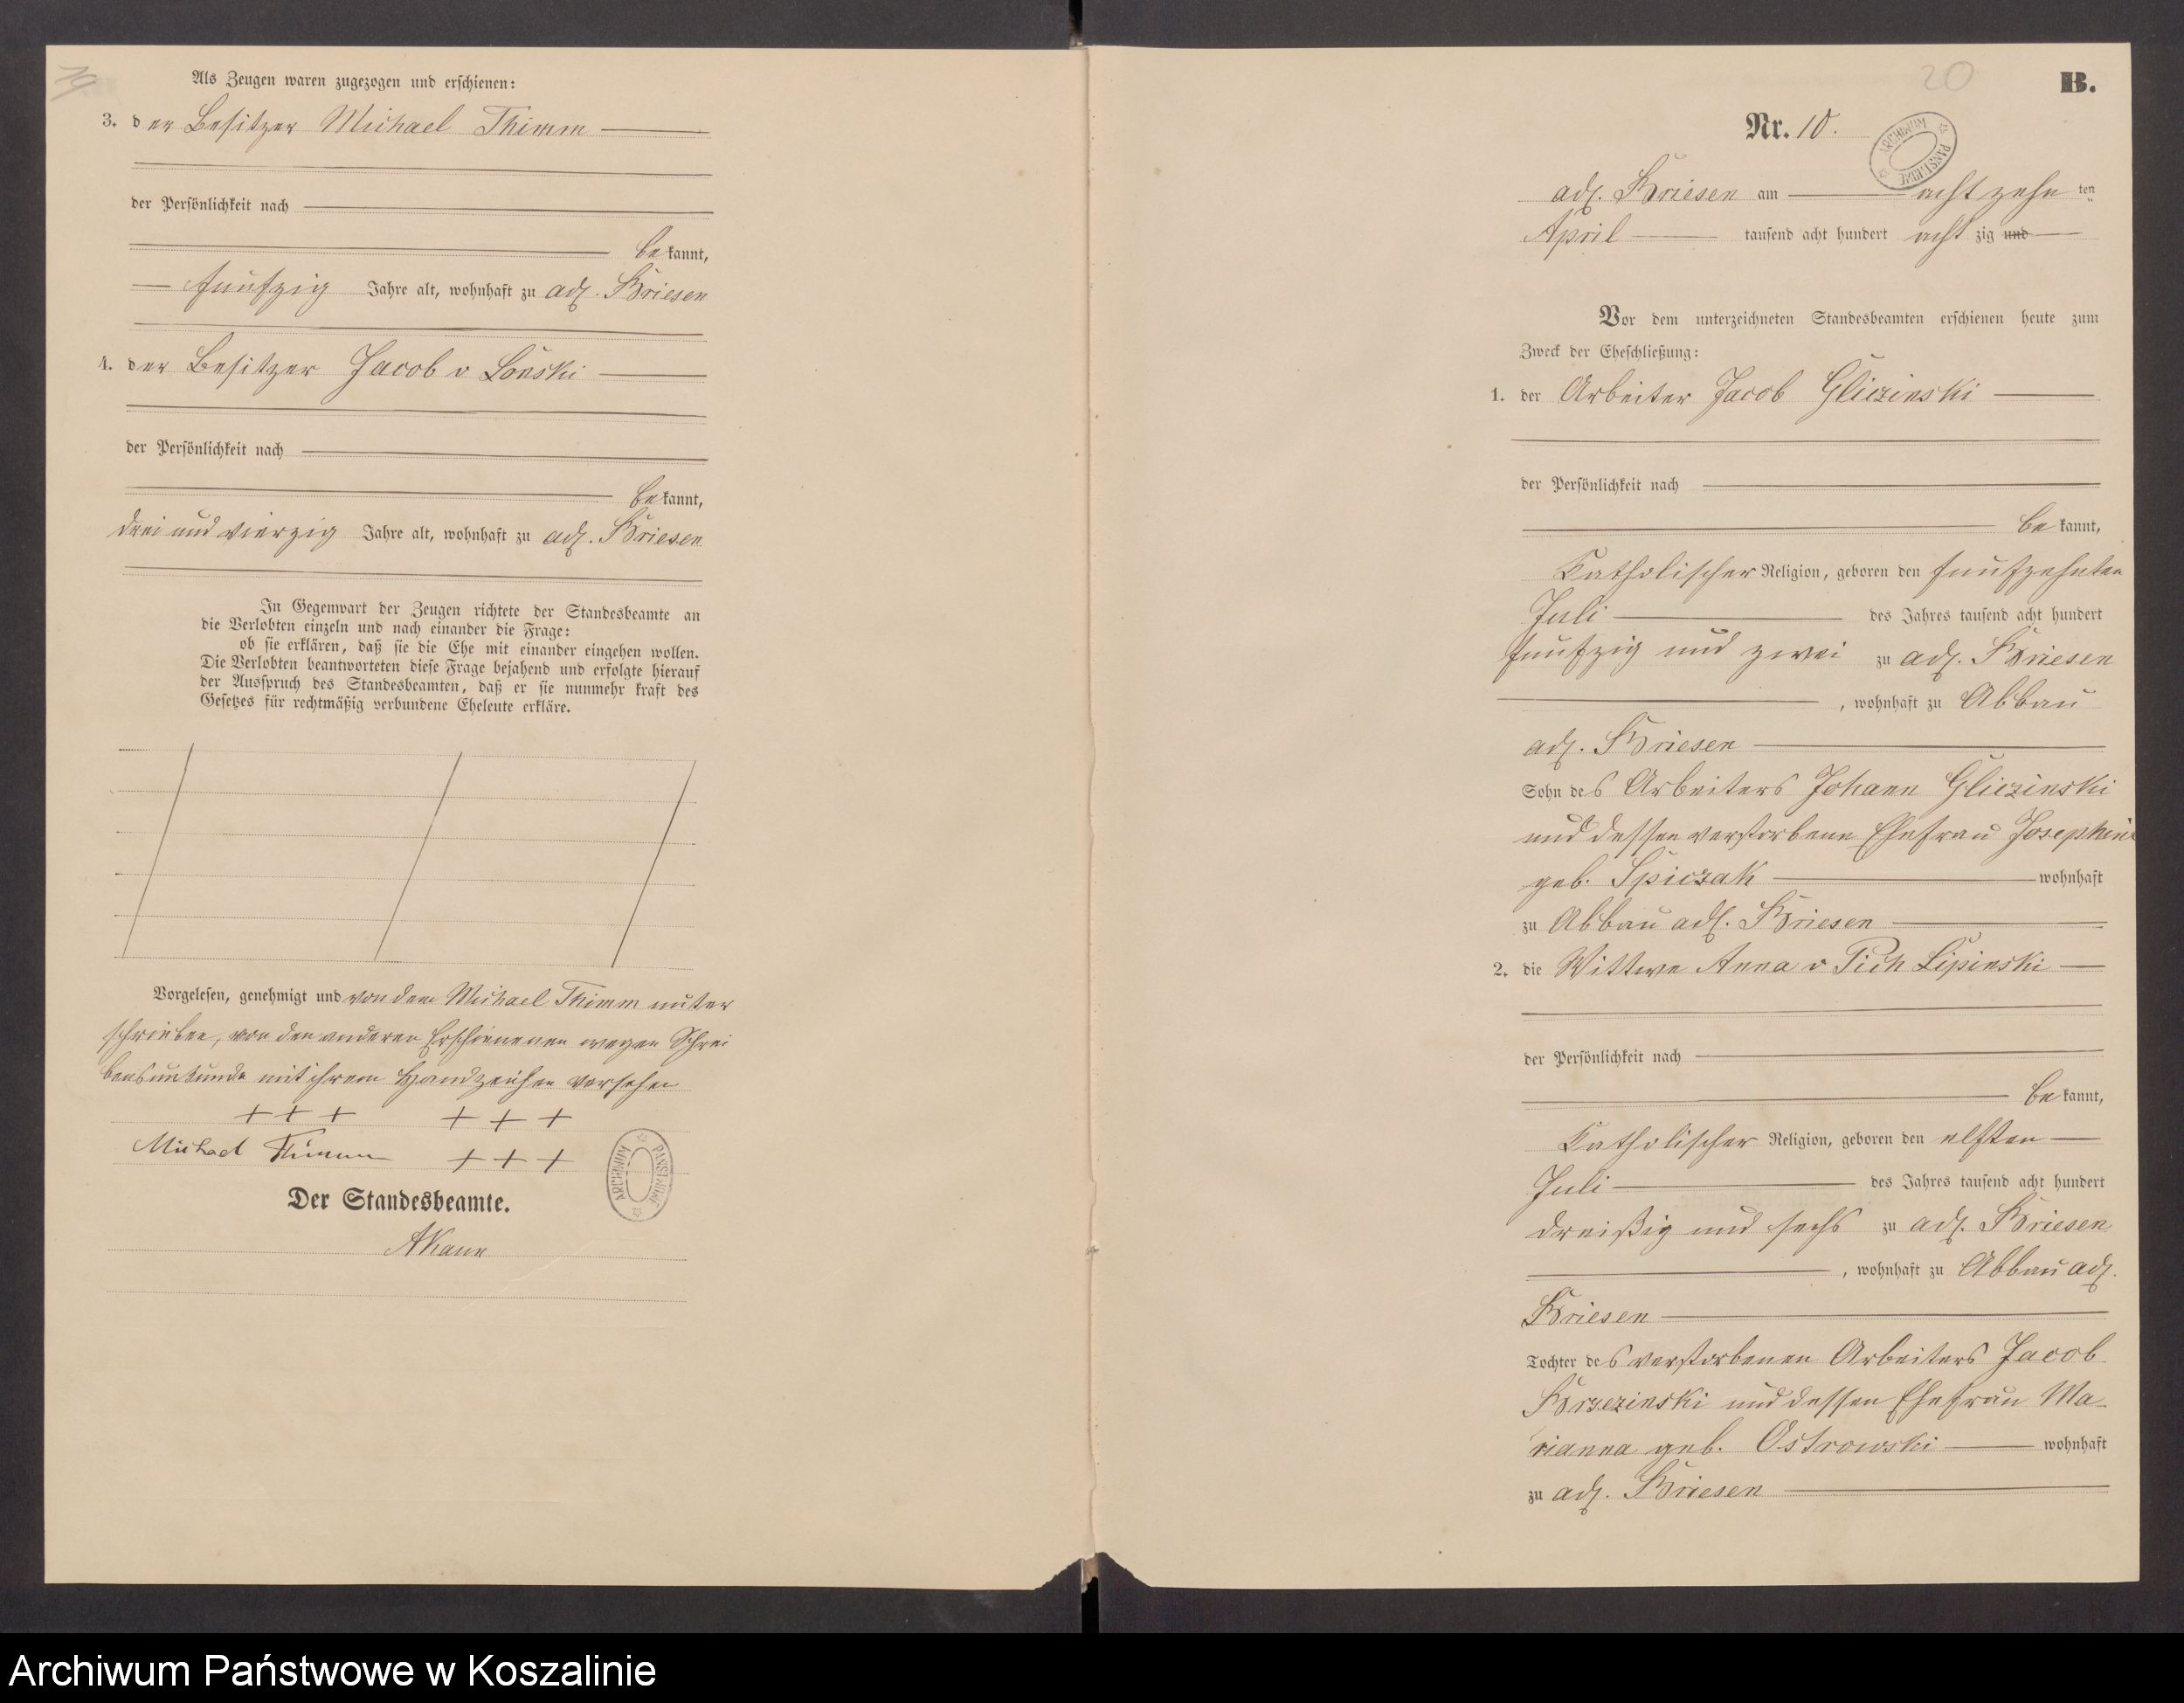 Als Zeugen waren zugezogen und erschienen:
3. der Besitzer Michael Thimm
der Persönlichkeit nach
bekannt,
funfzig Jahre alt, wohnhaft zu adl. Briesen
4. der Besitzer Jacob v Lonski
der Persönlichkeit nach
bekannt,
drei und vierzig Jahre alt, wohnhaft zu adl. Briesen
In Gegenwart der Zeugen richtete der Standesbeamte an
die Verlobten einzeln und nach einander die Frage:
ob sie erklären, daß sie die Ehe mit einander eingehen wollen.
Die Verlobten beantworteten diese Frage bejahend und erfolgte hierauf
der Ausspruch des Standesbeamten, daß er sie nunmehr kraft des
Gesetzes für rechtmäßig verbundene Eheleute erkläre.
Vorgelesen, genehmigt und von dem Michael Thimm unter
schrieben, von den anderen Erschienenen wegen Schrei
bensunkunde mit ihrem Handzeichen versehen
+ + + + + +
Michael Thimm + + +
ARCHIWUM PAŃSTWOWE
Der Standesbeamte.
AKann
20
B.
Nr. 10.
ARCHIWUM PAŃSTWOWE
adl. Briesen am acht zehn ten
April tausend acht hundert acht zig und
Vor dem unterzeichneten Standesbeamten erschienen heute zum
Zweck der Eheschließung:
1. der Arbeiter Jacob Gliczinski
der Persönlichkeit nach
bekannt,
Katholischer Religion, geboren den funfzehnten
Juli des Jahres tausend acht hundert
funfzig und zwei zu adl. Briesen
, wohnhaft zu Abbau
adl. Briesen
Sohn des Arbeiters Johann Gliczinski
und dessen verstorbene Ehefrau Josephine
geb. Spiczak wohnhaft
zu Abbau adl. Briesen
2. die Wittwe Anna v Pich Lipinski
der Persönlichkeit nach
bekannt,
Katholischer Religion, geboren den elften
Juli des Jahres tausend acht hundert
dreißig und sechs zu adl. Briesen
, wohnhaft zu Abbau adl.
Briesen
Tochter des verstorbenen Arbeiters Jacob
Brzezinski und dessen Ehefrau Ma-
rianna geb. Ostrowski wohnhaft
zu adl. Briesen
Archiwum Państwowe w Koszalinie